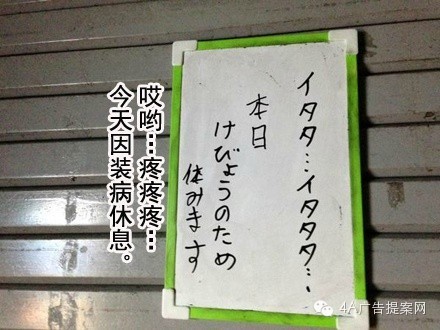 イタタ…イタタタ…
本日
けびょうのため
休みます
哎哟…疼疼疼…
今天因装病休息。
4A广告提案网